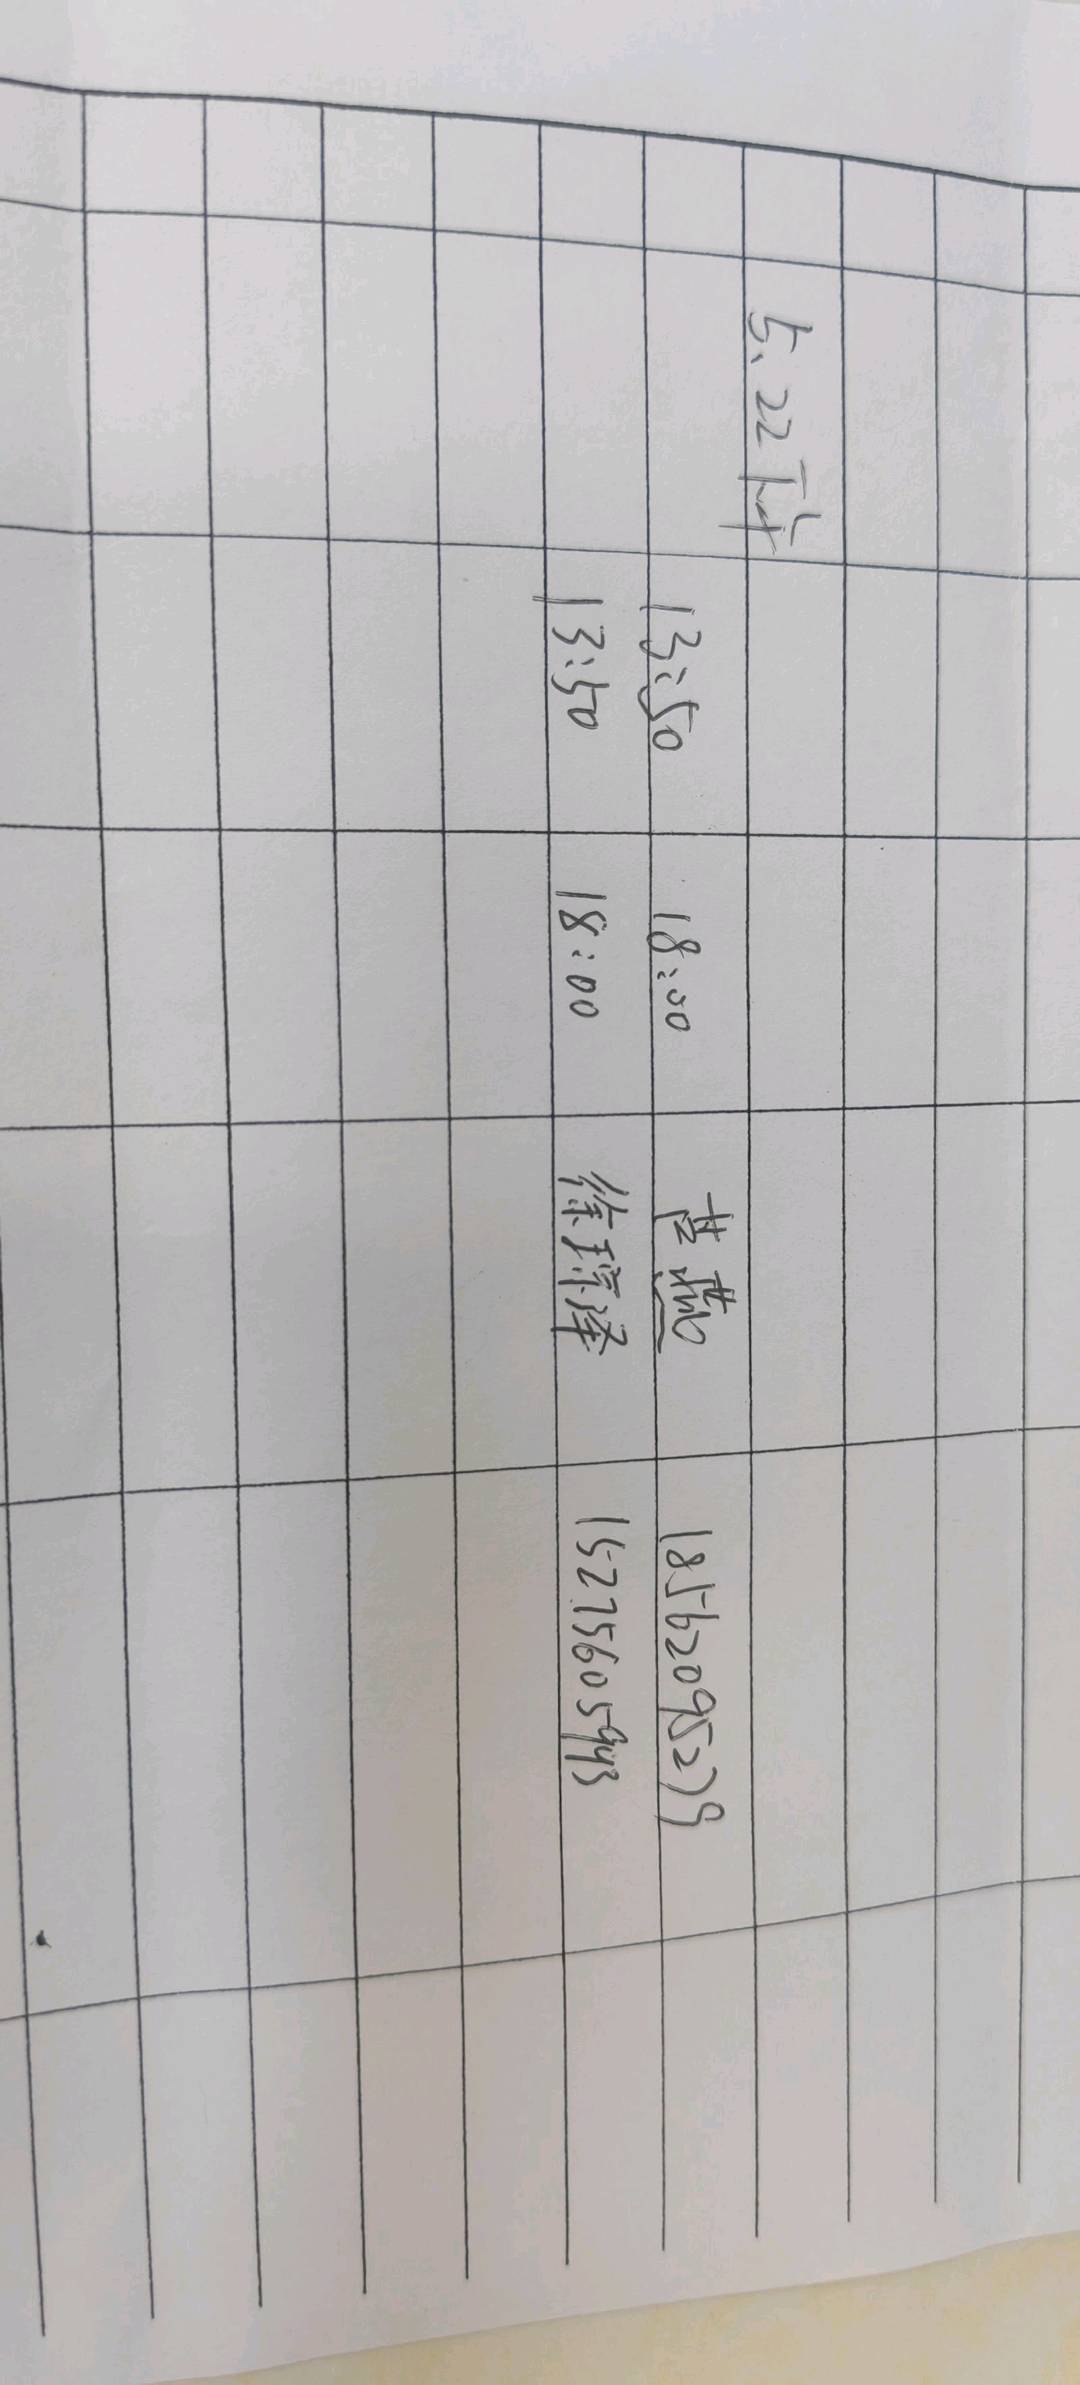 5.22下午
13:50 18:00 苗燕 18562095279
13:50 18:00 徐琼泽 15275605943